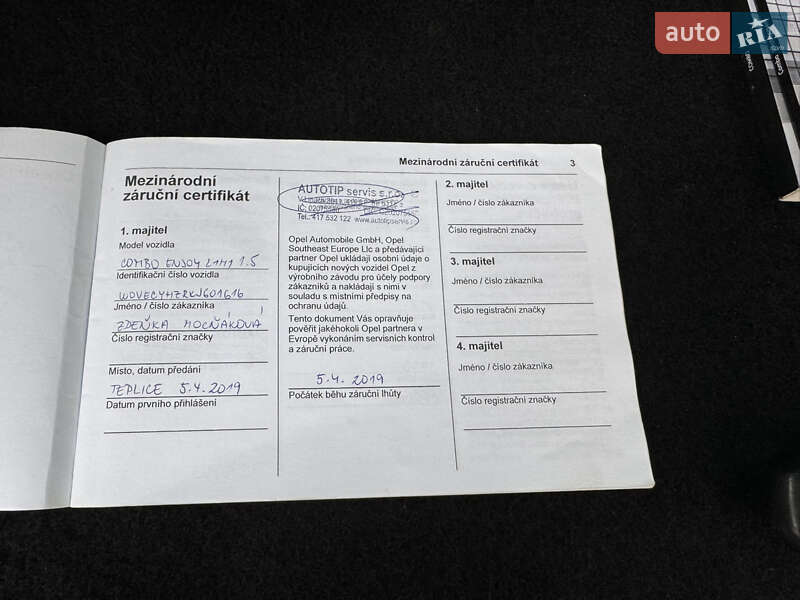 auto RIA
Mezinárodní záruční certifikát 3
Mezinárodní
záruční certifikát
1. majitel
Model vozidla
COMBO ENJOY L1H1 1.5
Identifikační číslo vozidla
W0VECYHZRKJ601616
Jméno / číslo zákazníka
ZDEŇKA MOCŇÁKOVA
Číslo registrační značky
Místo, datum předání
TEPLICE 5.4.2019
Datum prvního přihlášení
AUTOTIP servis s.r.o.
Tel.: 417 532 122 www.autotipservis.cz
Opel Automobile GmbH, Opel
Southeast Europe Llc a předávající
partner Opel ukládají osobní údaje o
kupujících nových vozidel Opel z
výrobního závodu pro účely podpory
zákazníků a nakládají s nimi v
souladu s místními předpisy na
ochranu údajů.
Tento dokument Vás opravňuje
pověřit jakéhokoli Opel partnera v
Evropě vykonáním servisních kontrol
a záruční práce.
5.4.2019
Počátek běhu záruční lhůty
2. majitel
Jméno / číslo zákazníka
Číslo registrační značky
3. majitel
Jméno / číslo zákazníka
Číslo registrační značky
4. majitel
Jméno / číslo zákazníka
Číslo registrační značky